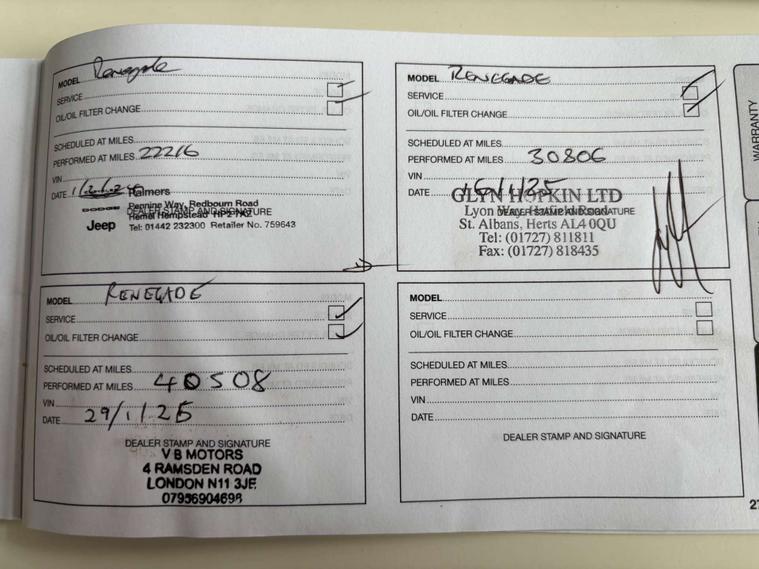 MODEL Renegade
SERVICE
OIL/OIL FILTER CHANGE
SCHEDULED AT MILES
PERFORMED AT MILES 22216
VIN
DATE
Palmers
DODGE Penning Way, Redbourn Road
DEALER STAMP AND SIGNATURE
Hemel Hempstead HP2 7AZ
Jeep Tel: 01442 232300 Retailer No. 759643
MODEL RENEGADE
SERVICE
OIL/OIL FILTER CHANGE
SCHEDULED AT MILES
PERFORMED AT MILES 30806
VIN
DATE
GLYN HOPKIN LTD
Lyon Way, Hatfield Road
DEALER STAMP AND SIGNATURE
St. Albans, Herts AL4 0QU
Tel: (01727) 811811
Fax: (01727) 818435
MODEL RENEGADE
SERVICE
OIL/OIL FILTER CHANGE
SCHEDULED AT MILES
PERFORMED AT MILES 40508
VIN
DATE 29/1/25
DEALER STAMP AND SIGNATURE
V B MOTORS
4 RAMSDEN ROAD
LONDON N11 3JE
07956904698
MODEL
SERVICE
OIL/OIL FILTER CHANGE
SCHEDULED AT MILES
PERFORMED AT MILES
VIN
DATE
DEALER STAMP AND SIGNATURE
WARRANTY